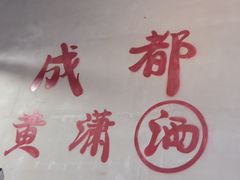 成都
黄潇洒